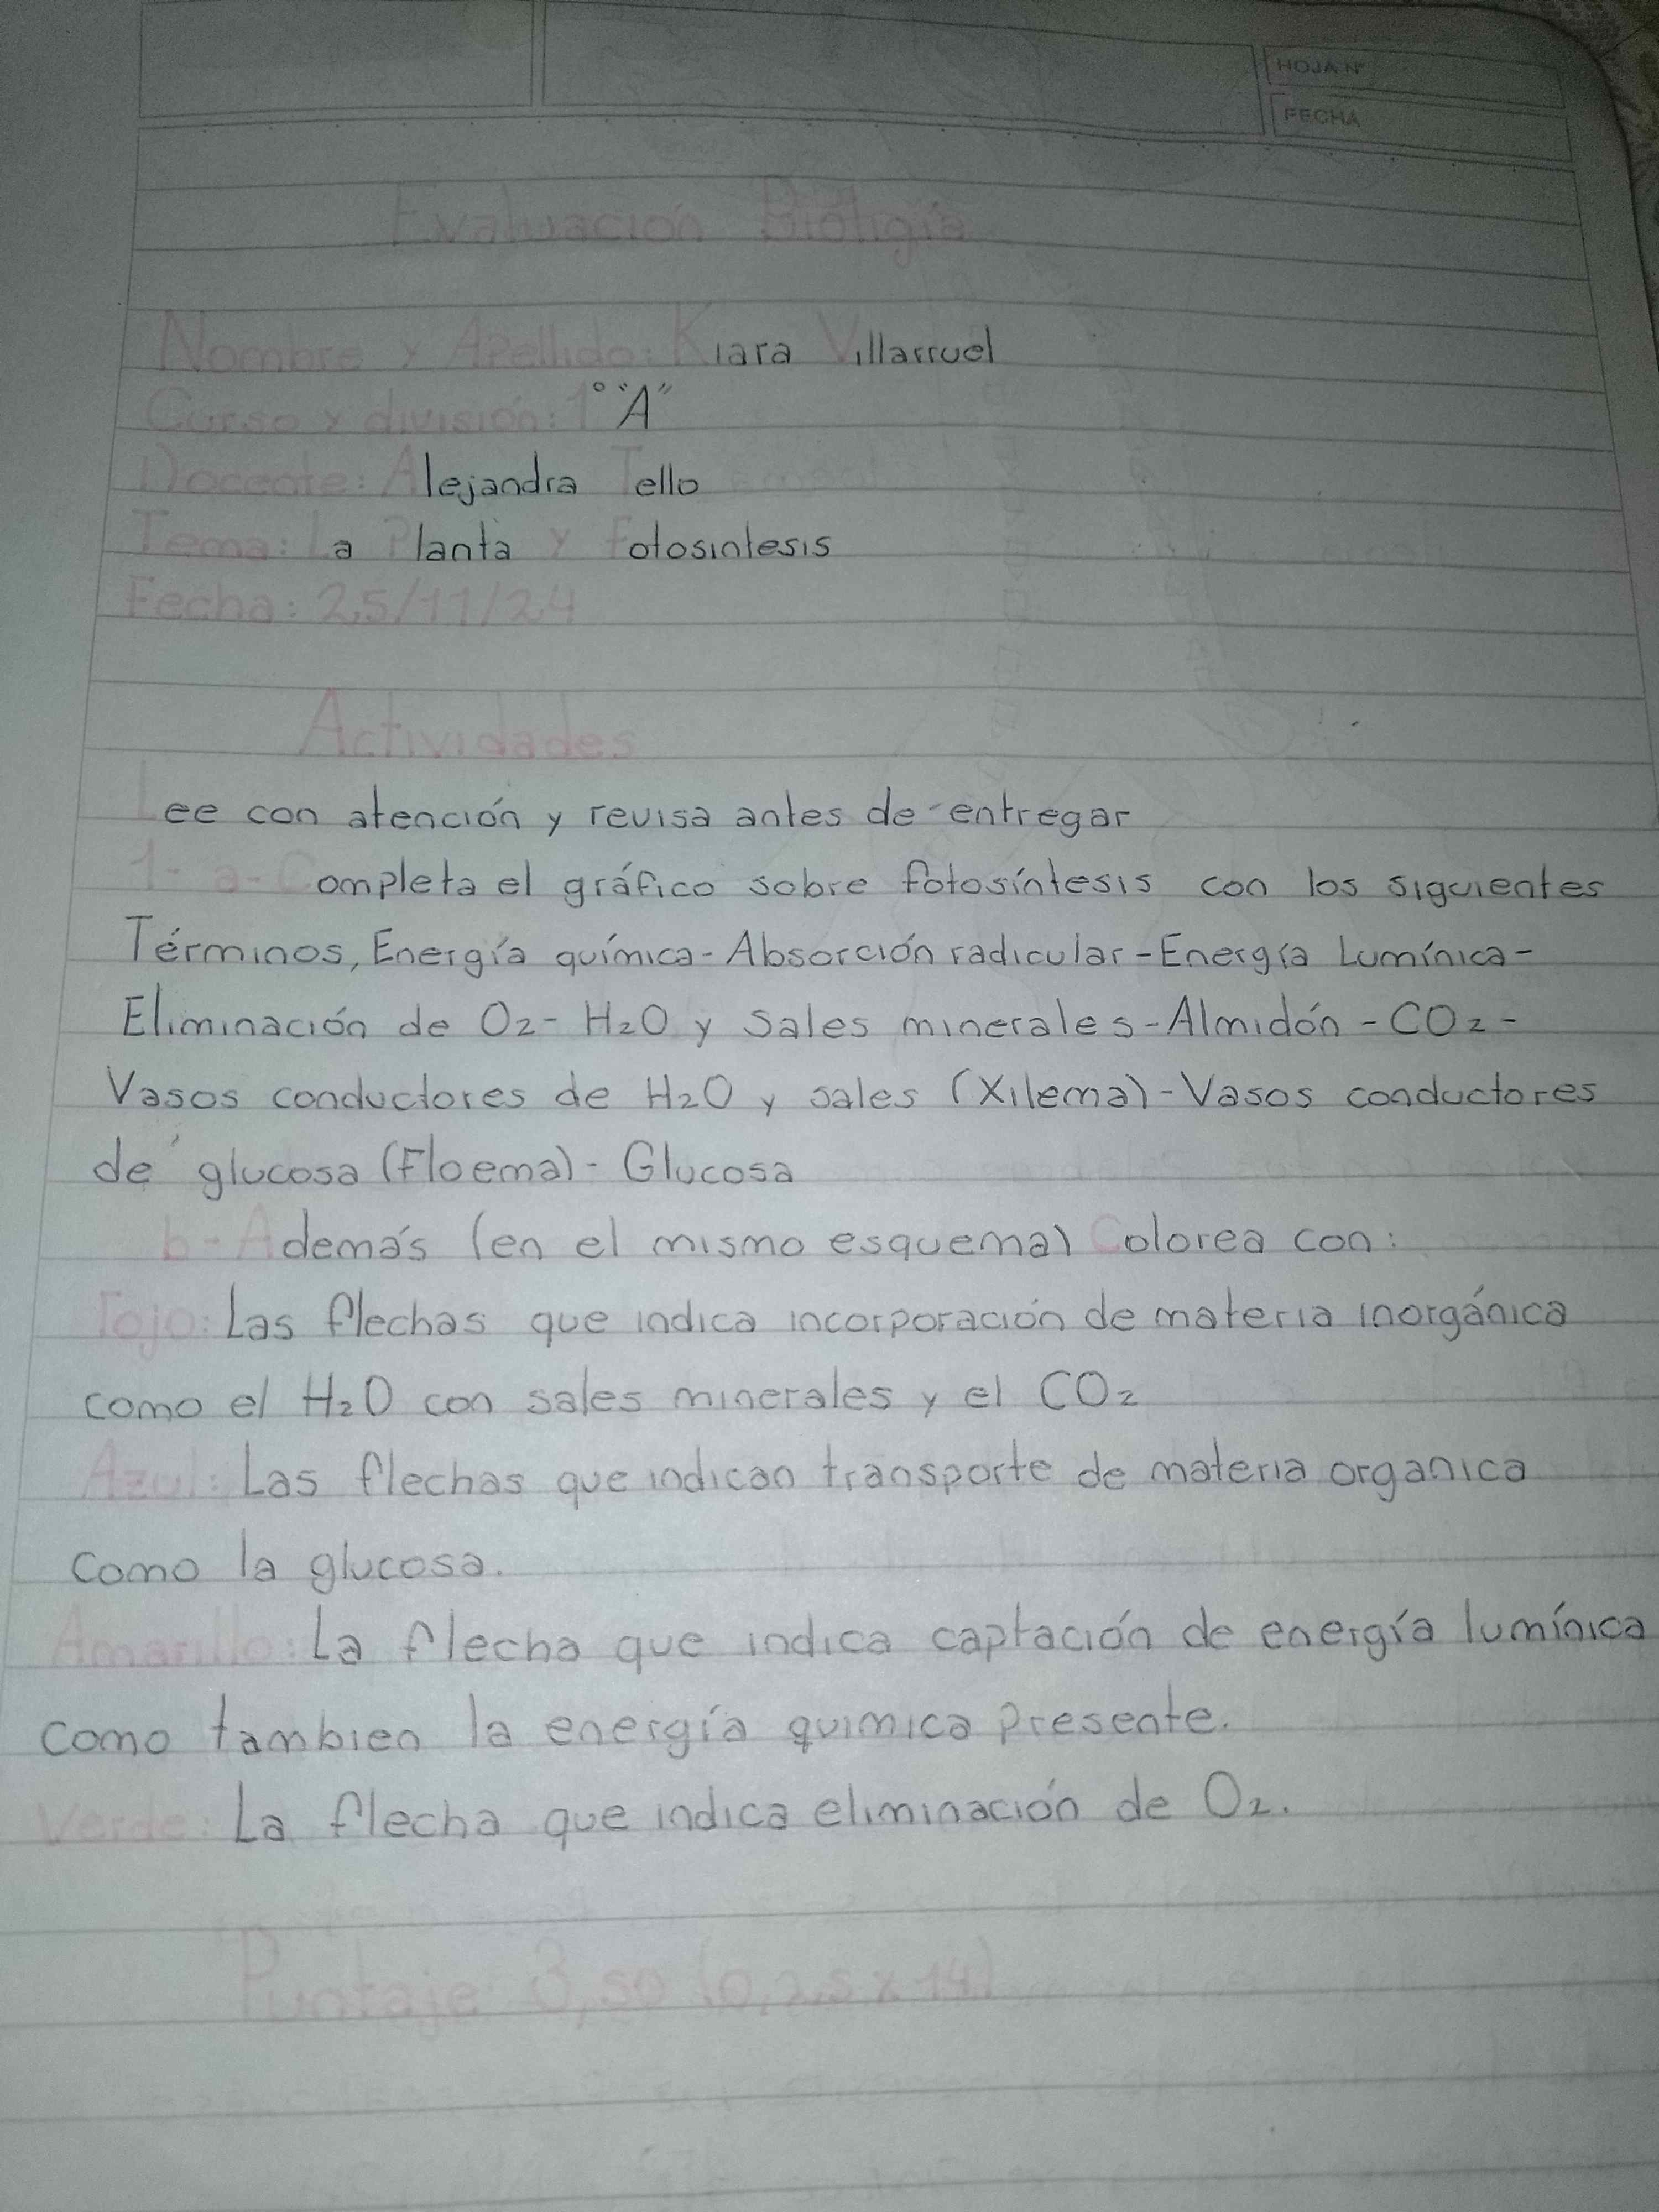 HOJA N°
FECHA
Evaluación Biología
Nombre y Apellido: Kiara Villarruel
Curso y división: 1° "A"
Docente: Alejandra Tello
Tema: La Planta y Fotosintesis
Fecha: 25/11/24
Actividades
Lee con atención y revisa antes de entregar
1- a- Completa el gráfico sobre fotosíntesis con los siguientes
Términos, Energía química - Absorción radicular - Energía Lumínica -
Eliminación de O2 - H2O y Sales minerales - Almidón - CO2 -
Vasos conductores de H2O y sales (Xilema) - Vasos conductores
de glucosa (Floema) - Glucosa
b- Además (en el mismo esquema) Colorea con:
Rojo: Las flechas que indica incorporación de materia inorgánica
como el H2O con sales minerales y el CO2
Azul: Las flechas que indican transporte de materia organica
como la glucosa.
Amarillo: La flecha que indica captación de energía lumínica
como tambien la energía quimica presente.
Verde: La flecha que indica eliminación de O2.
Puntaje: 3,50 (0,25 x 14)